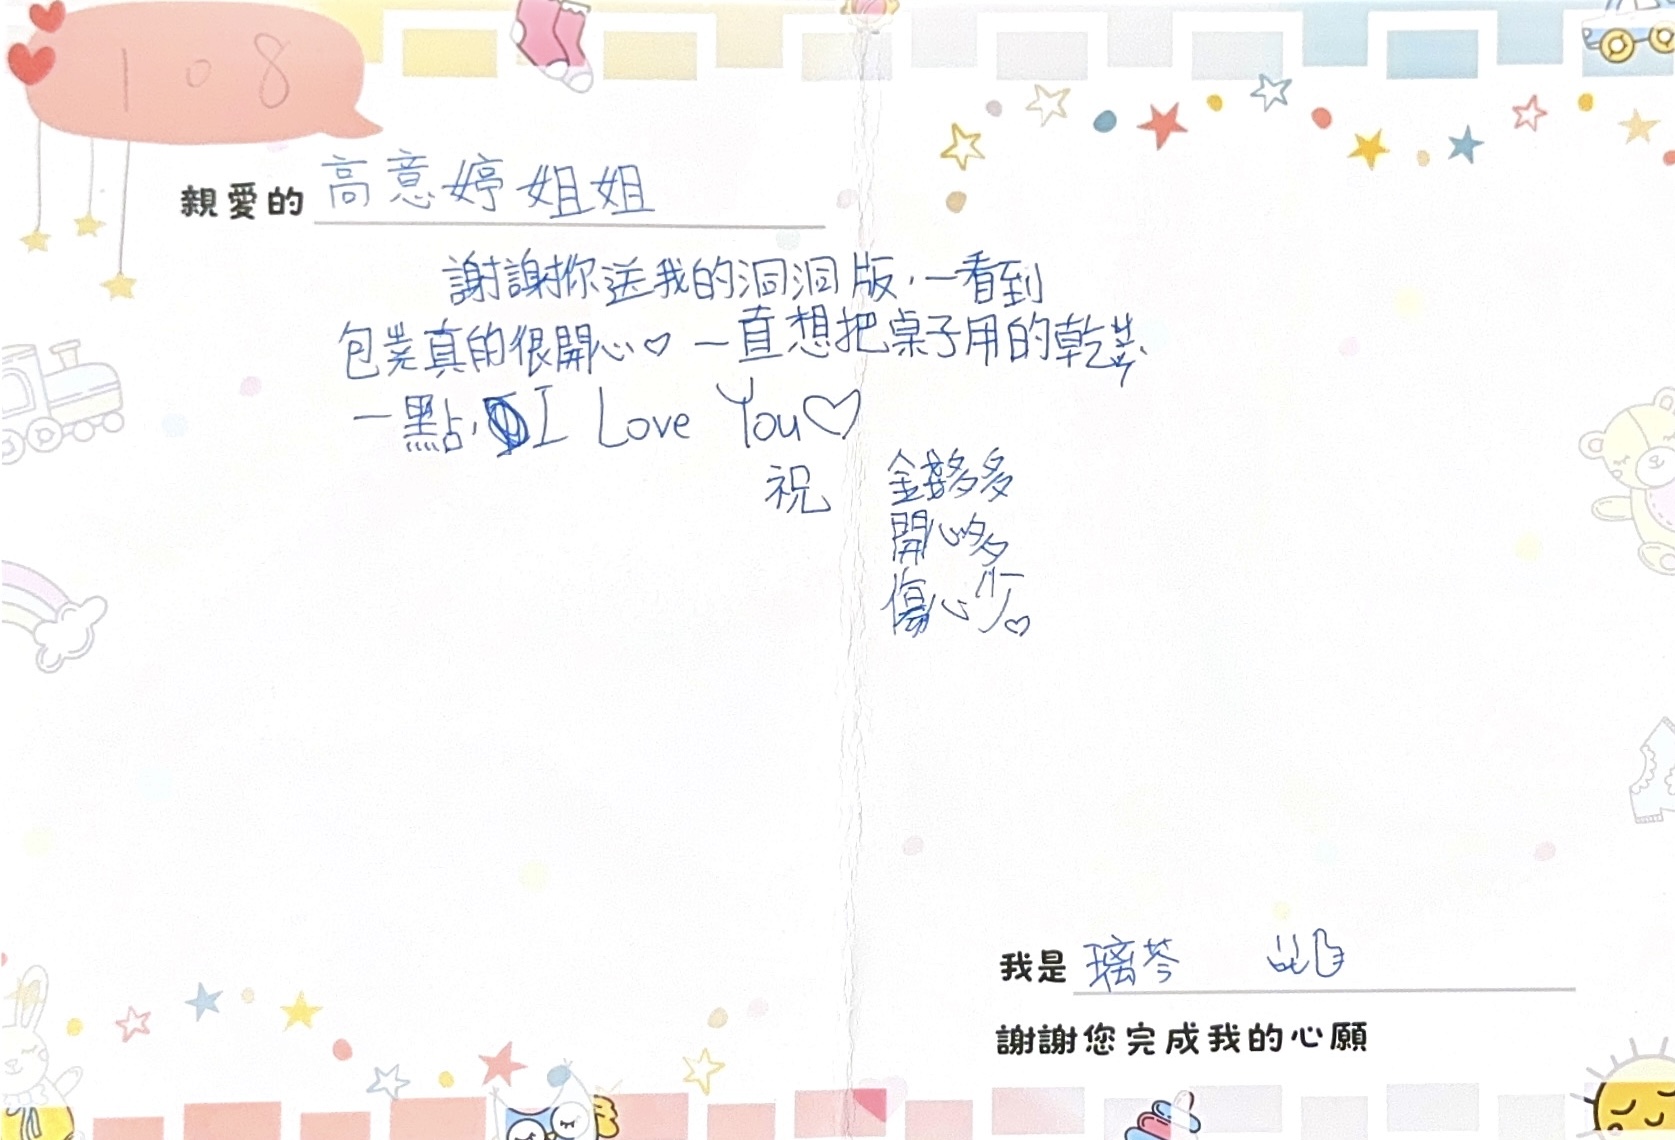 108
親愛的 高意婷姐姐
謝謝你送我的洞洞版,一看到
包裝真的很開心♡ 一直想把桌子用的乾淨
一點, I Love You♡
祝 錢多多
開心多
傷心少♡
我是 璃芩
謝謝您完成我的心願